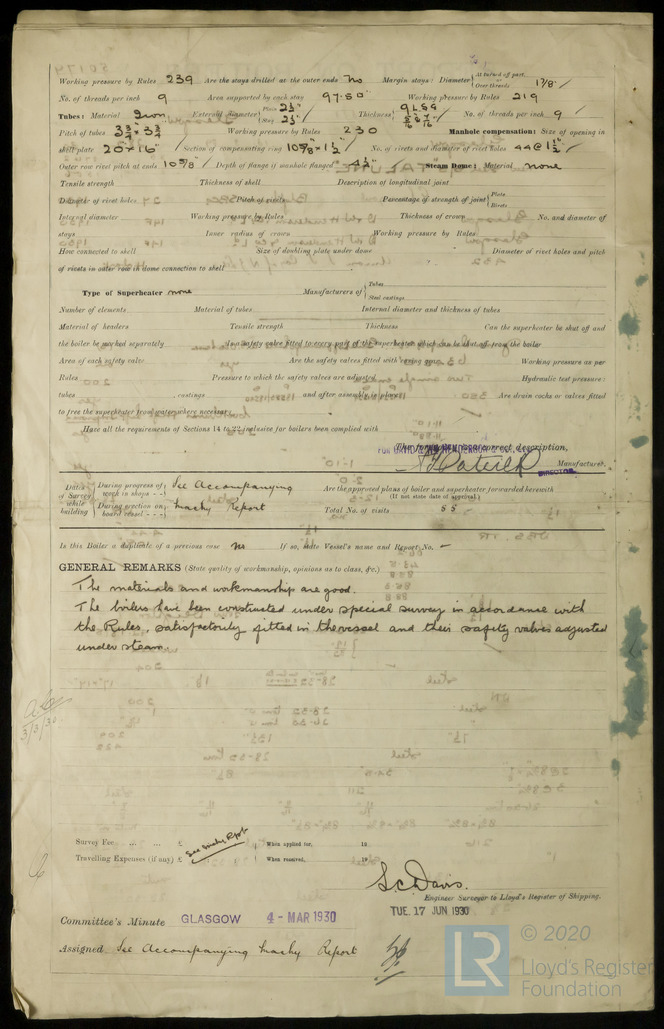 Working pressure by Rules 239 Are the stays drilled at the outer ends No Margin stays: Diameter { At turned off part, Over threads 1 7/8"
No. of threads per inch 9 Area supported by each stay 97.50" Working pressure by Rules 219
Tubes: Material Iron External diameter { Plain 2½" Stay 2½" Thickness { 9 L.S.G 5/16 & 7/16 No. of threads per inch 9
Pitch of tubes 3¾ × 3¾ Working pressure by Rules 230 Manhole compensation: Size of opening in
shell plate 20" × 16" Section of compensating ring 10 5/8" × 1½" No. of rivets and diameter of rivet holes 44 @ 1½"
Outer row rivet pitch at ends 10 5/8" Depth of flange if manhole flanged 4½" Steam Dome: Material none
Tensile strength Thickness of shell Description of longitudinal joint
Diameter of rivet holes Pitch of rivets Percentage of strength of joint { Plate Rivets
Internal diameter Working pressure by Rules Thickness of crown No. and diameter of
stays Inner radius of crown Working pressure by Rules
How connected to shell Size of doubling plate under dome Diameter of rivet holes and pitch
of rivets in outer row in dome connection to shell
Type of Superheater none Manufacturers of { Tubes Steel castings
Number of elements Material of tubes Internal diameter and thickness of tubes
Material of headers Tensile strength Thickness Can the superheater be shut off and
the boiler be worked separately Is a safety valve fitted to every part of the superheater which can be shut off from the boiler
Area of each safety valve Are the safety valves fitted with easing gear Working pressure as per
Rules Pressure to which the safety valves are adjusted Hydraulic test pressure:
tubes castings and after assembly in place Are drain cocks or valves fitted
to free the superheater from water where necessary
Have all the requirements of Sections 14 to 22 inclusive for boilers been complied with
The foregoing is a correct description,
Manufacturer.
DIRECTOR.
Dates of Survey while building { During progress of work in shops - - See Accompanying Are the approved plans of boiler and superheater forwarded herewith
(If not state date of approval.)
During erection on board vessel - - - Machy Report Total No. of visits 55
Is this Boiler a duplicate of a previous case No If so, state Vessel's name and Report No. –
GENERAL REMARKS (State quality of workmanship, opinions as to class, &c.)
The materials and workmanship are good.
The boilers have been constructed under special survey in accordance with
the Rules, satisfactorily fitted in the vessel and their safety valves adjusted
under steam.
3/3/30
Survey Fee ... ... ... £ See Machy Rept When applied for, 19
Travelling Expenses (if any) £ When received, 19
S.C. Davis.
Engineer Surveyor to Lloyd's Register of Shipping.
TUE. 17 JUN 1930
Committee's Minute GLASGOW 4 - MAR 1930
Assigned See Accompanying Machy Report
LR © 2020
Lloyd's Register
Foundation